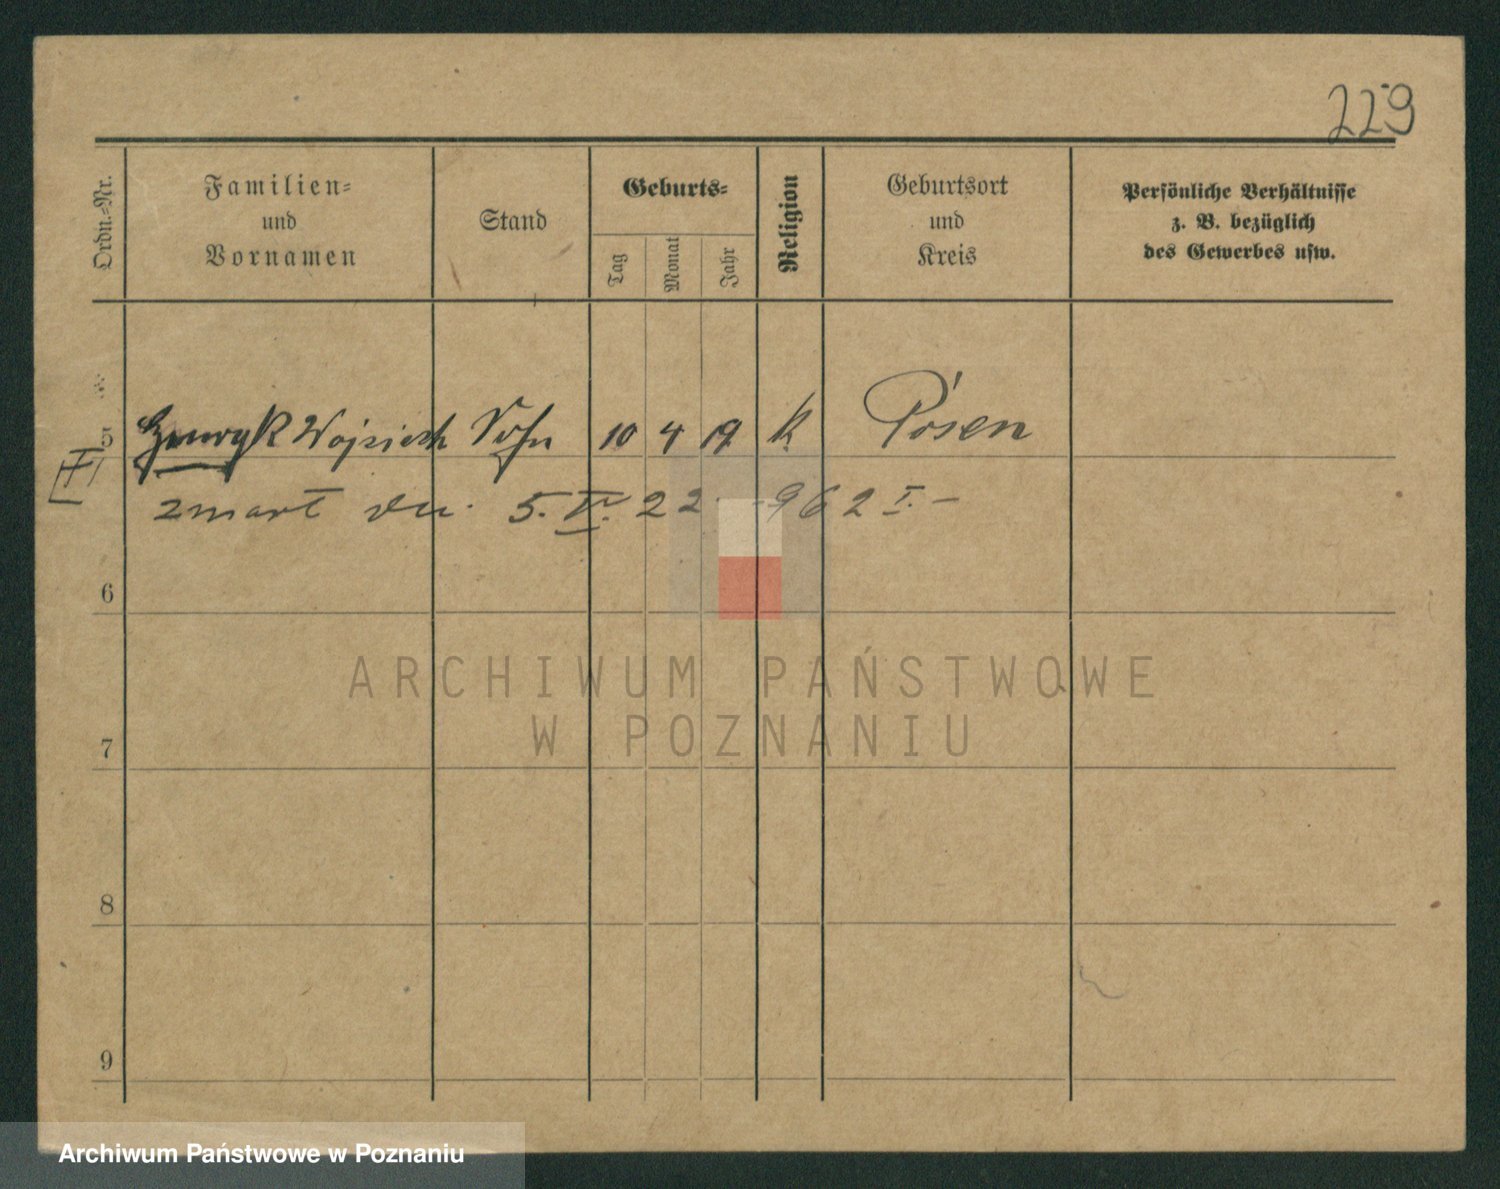 229
Ordn.=Nr.
Familien=
und
Vornamen
Stand
Geburts=
Tag
Monat
Jahr
Religion
Geburtsort
und
Kreis
Persönliche Verhältnisse
z. B. bezüglich
des Gewerbes usw.
5 Henryk Wojciech Sohn 10 4 19 k Posen
zmarł 5. 22 962 I.-
6
7
8
9
ARCHIWUM PAŃSTWOWE
W POZNANIU
Archiwum Państwowe w Poznaniu